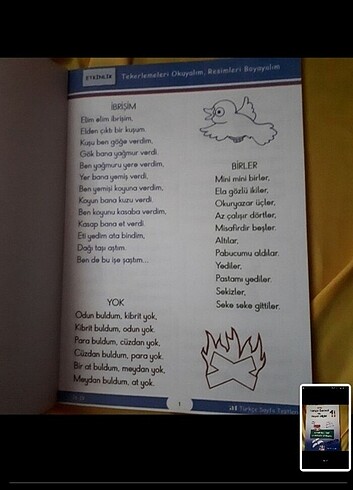 ETKİNLİK
Tekerlemeleri Okuyalım, Resimleri Boyayalım
İBRİŞİM
Elim elim ibrişim,
Elden çıktı bir kuşum.
Kuşu ben göğe verdim,
Gök bana yağmur verdi.
Ben yağmuru yere verdim,
Yer bana yemiş verdi,
Ben yemişi koyuna verdim,
Koyun bana kuzu verdi.
Ben koyunu kasaba verdim,
Kasap bana et verdi.
Eti yedim ata bindim,
Dağı taşı aştım.
Ben de bu işe şaştım...
BİRLER
Mini mini birler,
Ela gözlü ikiler,
Okuryazar üçler,
Az çalışır dörtler,
Misafirdir beşler.
Altılar,
Pabucumu aldılar.
Yediler,
Pastamı yediler.
Sekizler,
Seke seke gittiler.
YOK
Odun buldum, kibrit yok,
Kibrit buldum, odun yok.
Para buldum, cüzdan yok,
Cüzdan buldum, para yok.
Bir at buldum, meydan yok,
Meydan buldum, at yok.
1
Türkçe